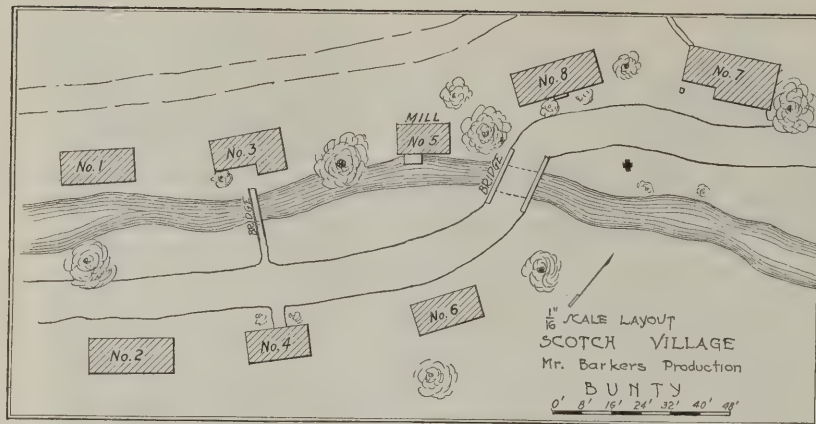 No. 8
No. 7
MILL
No 5
No. 3
No. 1
BRIDGE
BRIDGE
No. 6
No. 4
No. 2
1/16" SCALE LAYOUT
SCOTCH VILLAGE
Mr. Barkers Production
BUNTY
0' 8' 16' 24' 32' 40' 48'